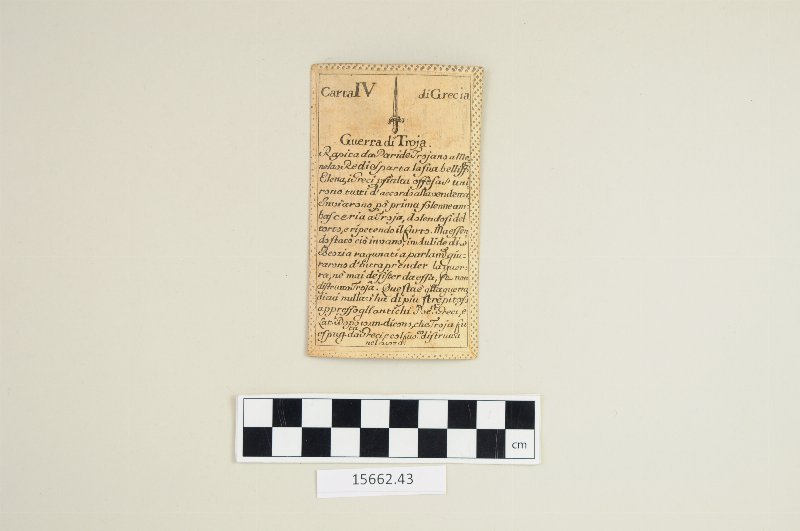 Carta IV di Grecia
Guerra di Troja.
Rapita da Paride Trojano a Me
nelao Re di Sparta la sua belliss.
Elena, i Greci offesa s' uni
rono tutti d' accordo alla vendetta
Inviarono pª prima solenne am
basceria a Troja, dolendosi del
torto, e ripetendo il furto. Ma essen
do stato ciò invano, in Aulide di
Beozia ragunati a parlamº giu
rarono d' intraprender la guer
ra, nè mai desister da essa, se non
distrutta Troja. Questa è quella guerra
di cui nulla v' ha di più strepitoso
appresso gli antichi Poeti Greci, e
Lat. Dopo 10 an. dicono, che Troja fu
espug. da Greci, e col suo distrutta
15662.43
cm